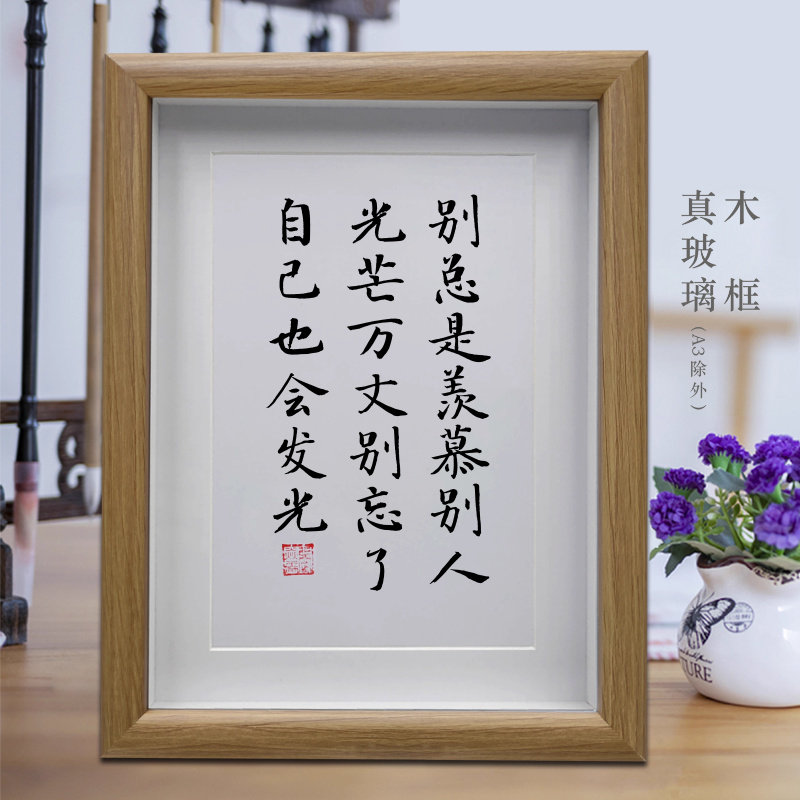 别总是羡慕别人
光芒万丈别忘了
自己也会发光
木框
真玻璃
(A3除外)